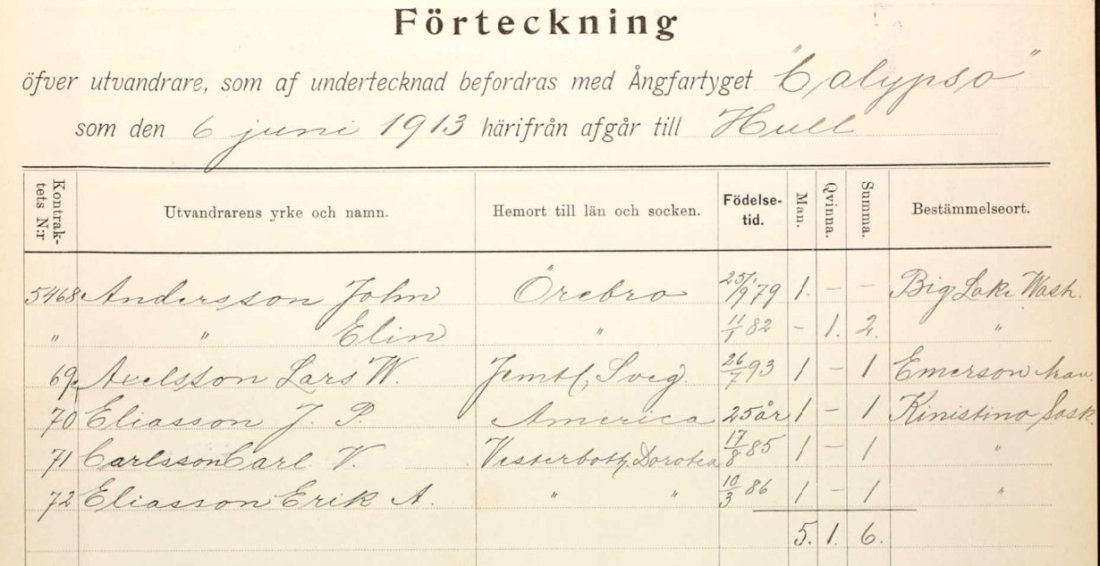 Förteckning
öfver utvandrare, som af undertecknad befordras med Ångfartyget "Calypso"
som den 6 juni 1913 härifrån afgår till Hull
Kontrak-tets N:r Utvandrarens yrke och namn. Hemort till län och socken. Födelse-tid. Man. Qvinna. Summa. Bestämmelseort.
5468 Andersson John Örebro 25/9 79 1. - - Big Lake Wash.
" " Elin " 11/1 82 - 1. 2. "
69 Axelsson Lars W. Jemtl, Sveg. 26/7 93 1 - 1 Emerson Man.
70 Eliasson J. P. America 25 år 1 - 1 Kinistino Sask.
71 Carlsson Carl V. Vesterbott, Dorotea 17/8 85 1 - 1 "
72 Eliasson Erik A. " " 10/3 86 1 - 1 "
5. 1. 6.